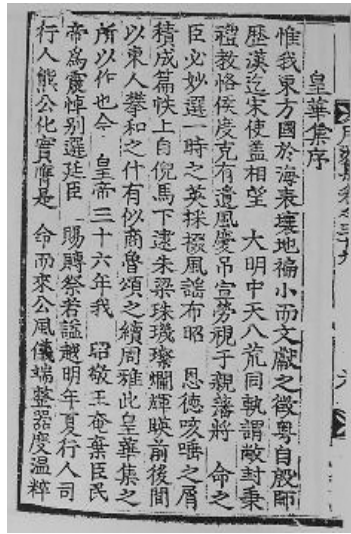 皇華集序
惟我東方國於海表壤地褊小而文獻之徵粤自殷師
歷漢迄宋使盖相望 大明中天八荒同軌謂敝封秉
禮教恪侯度克有遺風慶吊宣勞視于親藩將 命之
臣必妙選一時之英採掇風謠布昭 恩德咳唾之屑
積成篇帙上自倪馬下逮朱梁珠璣璨爛輝暎前後間
以東人攀和之什有似商魯頌之續周雅此皇華集之
所以作也今 皇帝三十六年我 昭敬王奄棄臣民
帝爲震悼别選廷臣 賜賻祭若謚越明年夏行人司
行人熊公化實膺是 命而來公風儀端整器度溫粹